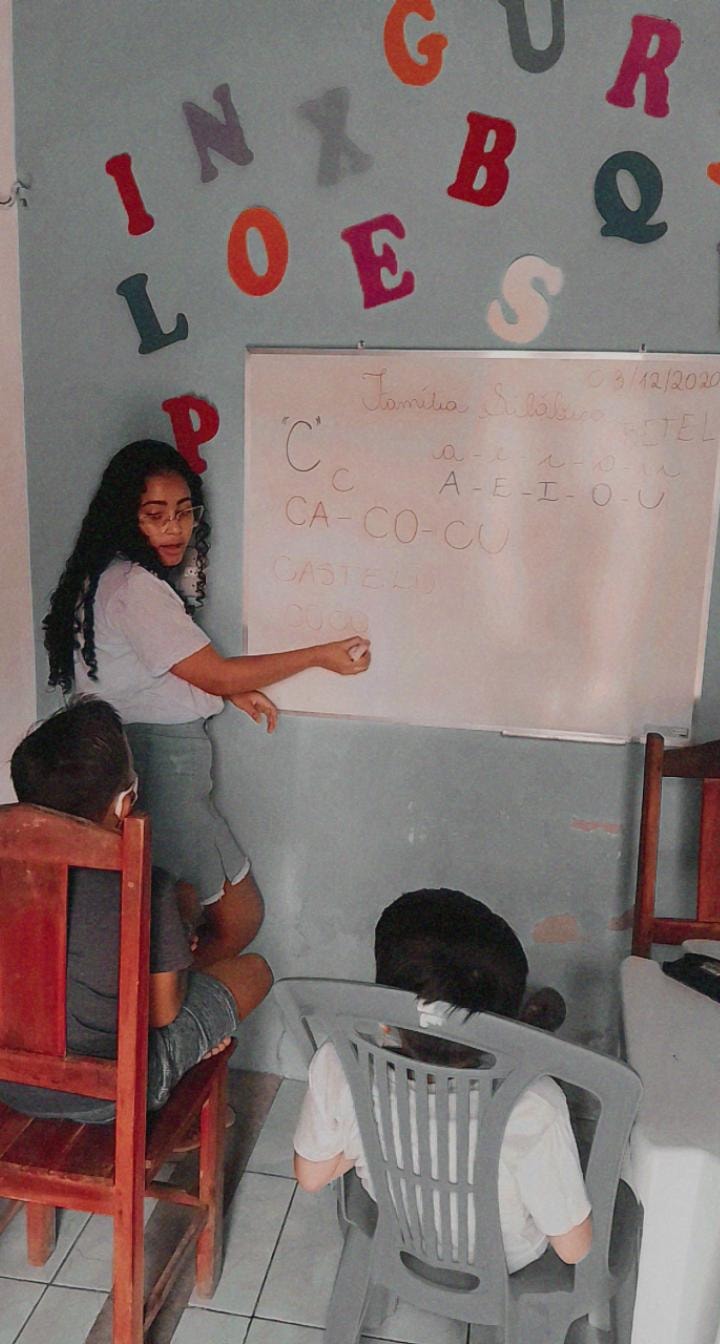 G U R
N X B Q
I O E S
L
P
03/12/2020
Família Silábica
BETEL
"C"
a - e - i - o - u
C
A - E - I - O - U
CA - CO - CU
CASTELO
COCO